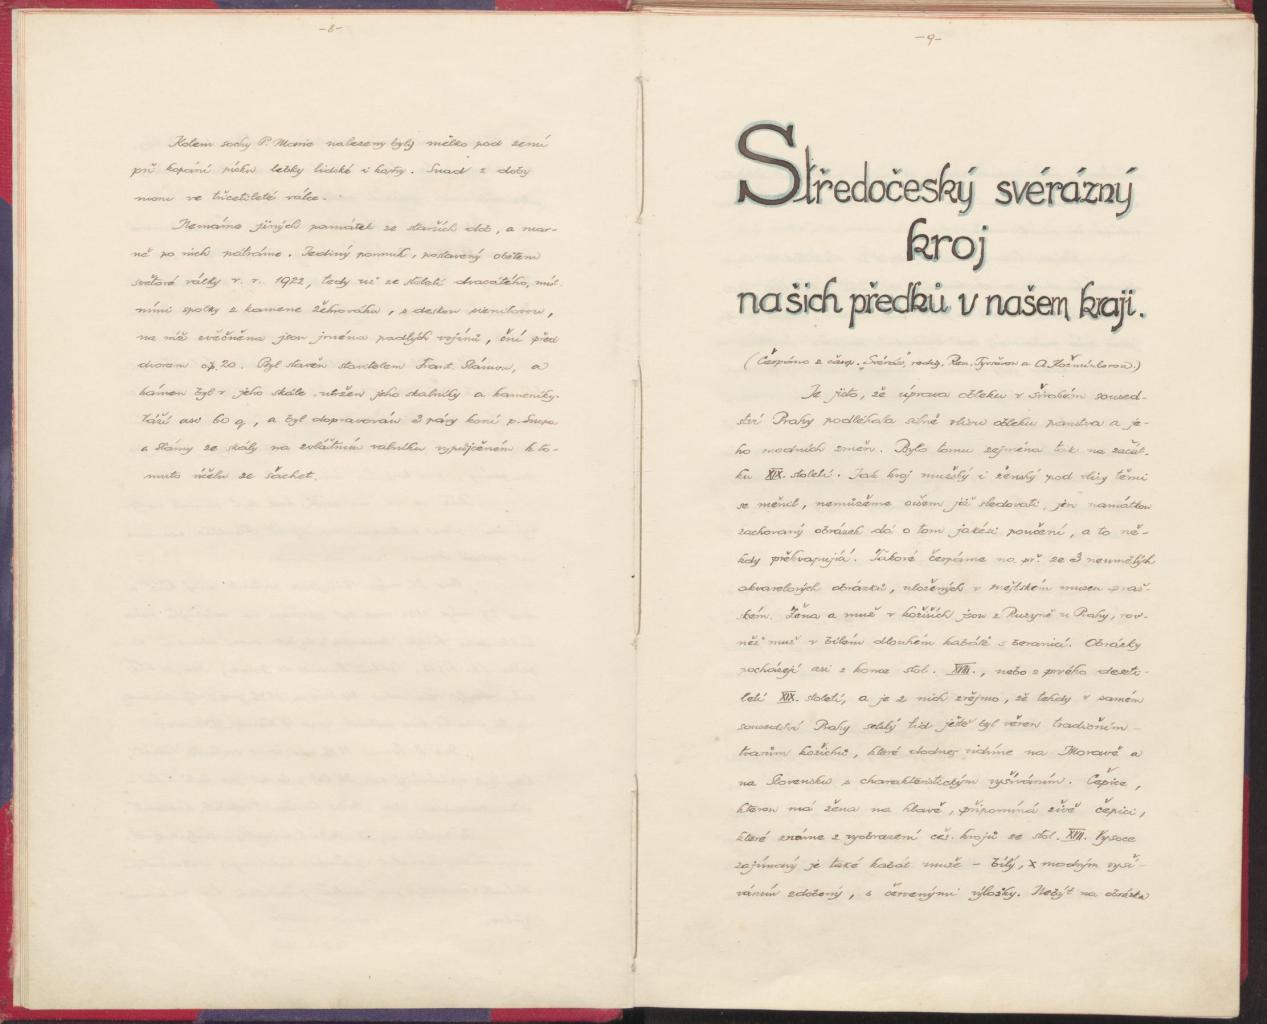 -8-
Kolem sochy P. Marie nalezeny byly mělko pod zemí
při kopání písku lebky lidské i kosti. Snad z doby
moru ve třicetileté válce.
Nemáme jiných památek ze starších dob, a mar-
ně po nich pátráme. Jediný pomník, postavený obětem
světové války v r. 1922, tedy už ze století dvacátého, míst-
ními spolky z kamene žehrováku, s deskou sienitovou,
na níž zvěčněna jsou jména padlých vojínů, ční před
dvorem čp. 20. Byl stavěn stavitelem Frant. Slámou, a
kámen byl v jeho skále utržen jeho skalníky a kameníky.
Váží asi 60 q, a byl dopravován 3 páry koní p.
a Slámy ze skály na zvláštním valníku vypůjčeném k to-
muto účelu ze šachet.
-9-
Středočeský svérázný
kroj
našich předků v našem kraji.
(Čerpáno z časop. „Svéráz" redig. Ren. Tyršovou a A. Kožmínkovou.)
Je jisto, že úprava obleku v širokém soused-
ství Prahy podléhala silně vlivu obleku panstva a je-
ho modních změn. Bylo tomu zejména tak na začát-
ku XIX. století. Jak kroj mužský i ženský pod vlivy těmi
se měnil, nemůžeme ovšem již sledovati, jen památkou
zachovaný obrázek dá o tom jakési poučení, a to ně-
kdy překvapující. Takové čerpáme na př. ze 3 neumělých
akvarelových obrázků, uložených v městském museu praž-
ském. Žena a muž v kožiších jsou z Ruzyně u Prahy, rov-
něž muž v bílém dlouhém kabátě s beranicí. Obrázky
pocházejí asi z konce stol. XVIII., nebo z prvého deseti-
letí XIX. století, a je z nich zřejmo, že tehdy v samém
sousedství Prahy selský lid ještě byl věren tradičním
tvarům kožichů, které dodnes vidíme na Moravě a
na Slovensku s charakteristickým vyšíváním. Čepice,
kterou má žena na hlavě, připomíná živě čepici,
které známe z vyobrazení čes. krojů ze stol. XVII. Vysoce
zajímavý je také kabát muže – bílý, s modrým vyší-
váním zdobený, s červenými výložky. Nebýt na obrázku